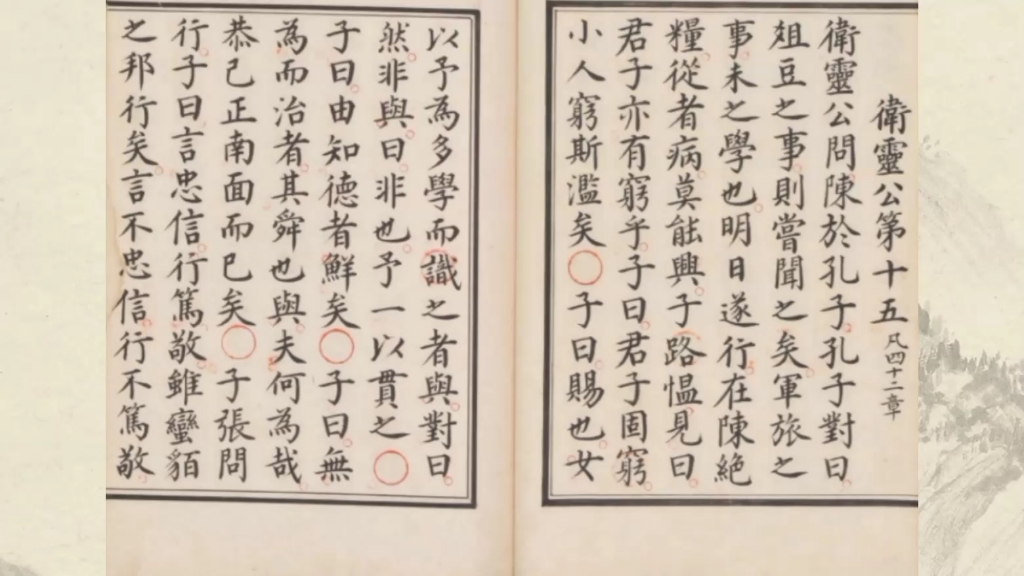 衛靈公第十五 凡四十二章
衛靈公問陳於孔子孔子對曰
俎豆之事則嘗聞之矣軍旅之
事未之學也明日遂行在陳絕
糧從者病莫能興子路慍見曰
君子亦有窮乎子曰君子固窮
小人窮斯濫矣○子曰賜也女
以予為多學而識之者與對曰
然非與曰非也予一以貫之○
子曰由知德者鮮矣○子曰無
為而治者其舜也與夫何為哉
恭己正南面而已矣○子張問
行子曰言忠信行篤敬雖蠻貊
之邦行矣言不忠信行不篤敬